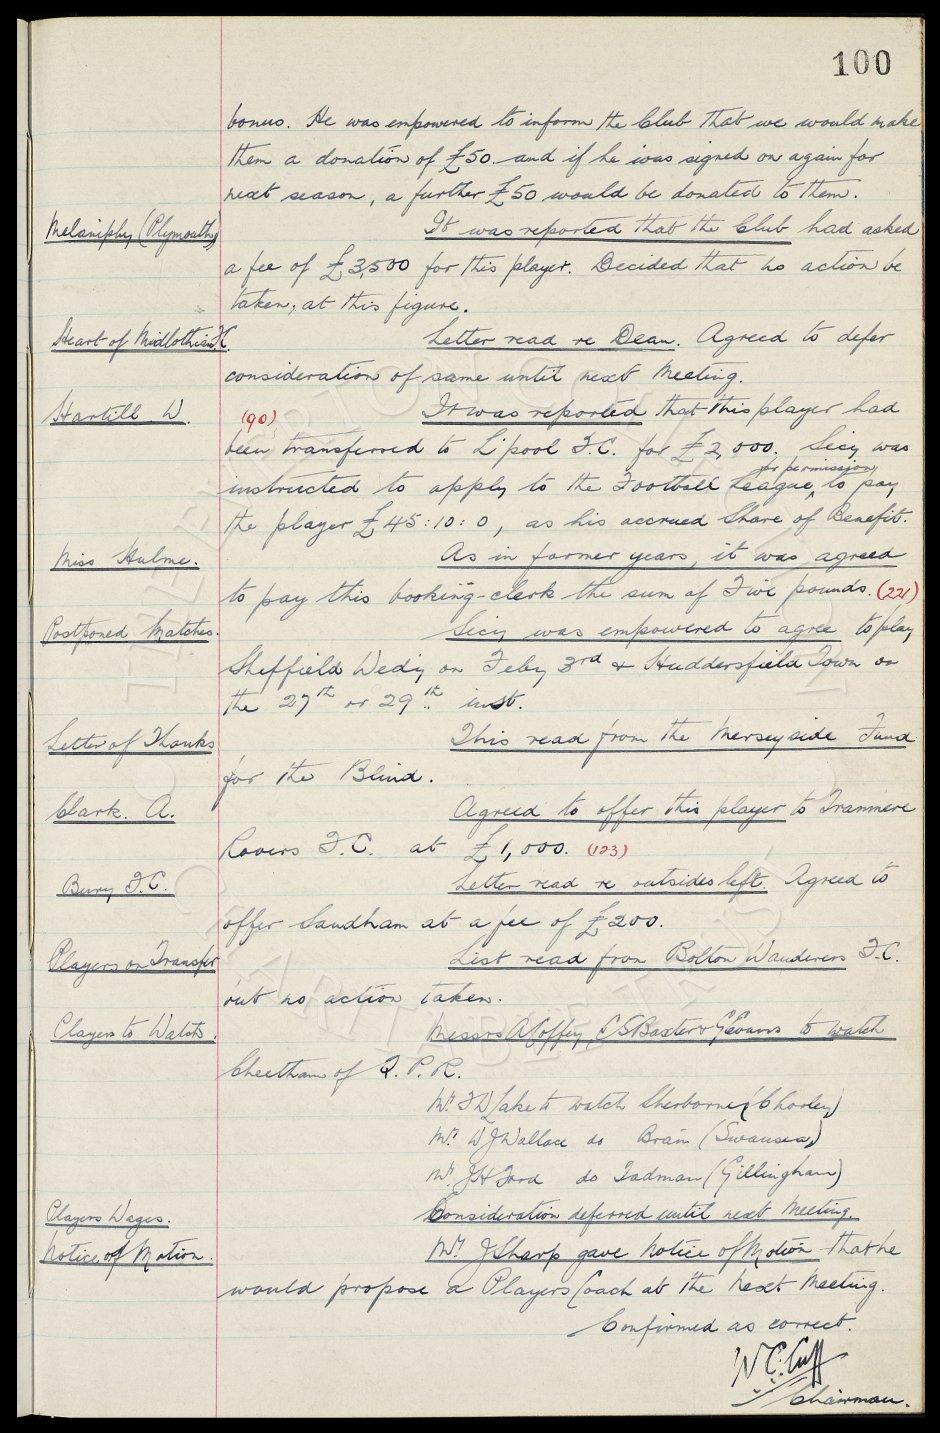 100
bonus. He was empowered to inform the Club that we would make
them a donation of £50 and if he was signed on again for
next season, a further £50 would be donated to them.
Melaniphy (Plymouth) It was reported that the Club had asked
a fee of £3,500 for this player. Decided that no action be
taken, at this figure.
Heart of Midlothian F.C. Letter read re Dean. Agreed to defer
consideration of same until next Meeting.
Hartill W. (90) It was reported that this player had
been transferred to L'pool F.C. for £2,000. Secy was
for permission
instructed to apply to the Football League, to pay
the player £45:10:0, as his accrued Share of Benefit.
Miss Hulme. As in former years, it was agreed
to pay this booking-clerk the sum of Five pounds. (221)
Postponed Matches. Secy was empowered to agree to play
Sheffield Wedy on Feby 3rd & Huddersfield Town on
the 27th or 29th inst.
Letter of Thanks This read from the Merseyside Fund
for the Blind.
Clark. A. Agreed to offer this player to Tranmere
Rovers F.C. at £1,000. (123)
Bury F.C. Letter read re outsides left. Agreed to
offer Sandham at a fee of £200.
Players on Transfer List read from Bolton Wanderers F.C.
but no action taken.
Players to Watch. Messrs A Coffey, E S Baxter & G Evans to watch
Cheetham of Q.P.R.
Mr. F D Lake to watch Sherborne (Chorley)
Mr. W J Wallace do Brain (Swansea)
Mr. J H Ford do Tadman (Gillingham)
Players Wages. Consideration deferred until next Meeting.
Notice of Motion. Mr. J Sharp gave Notice of Motion that he
would propose a Players Coach at the next Meeting.
Confirmed as correct.
W C. Cuff
Chairman.